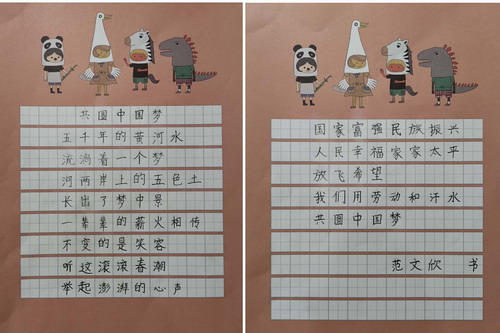 共圆中国梦
五千年的黄河水
流淌着一个梦
河两岸上的五色土
长出了梦中景
一辈辈的薪火相传
不变的是笑容
听这滚滚春潮
举起澎湃的心声
国家富强民族振兴
人民幸福家家太平
放飞希望
我们用劳动和汗水
共圆中国梦
范文欣 书